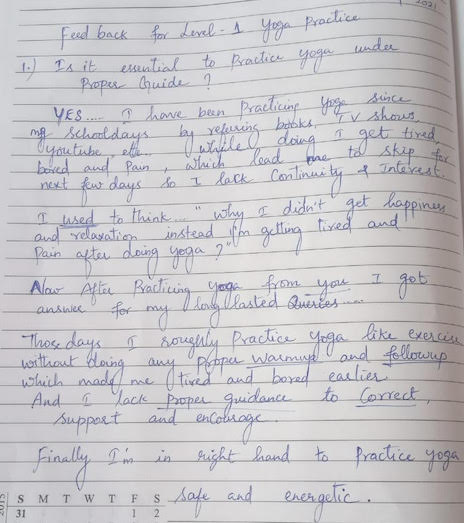 2021
Feed back for Level - 1 Yoga Practice
1.) Is it essential to Practice yoga under
Proper Guide ?
YES.... I have been Practicing Yoga since
my schooldays by refering books, TV shows,
youtube, etc... while doing I get tired,
bored and Pain, which lead me to skip for
next few days so I lack Continuity & Interest.
I used to think... "Why I didn't get happiness
and relaxation instead I'm getting tired and
Pain after doing yoga ?"
Now After Practicing yoga from you I got
answer for my long lasted Queries....
Those days I roughly Practice yoga like exercise
without doing any proper warmup and followup
which made me tired and bored earlier
And I lack Proper guidance to Correct,
support and encourage.
Finally I'm in right hand to Practice yoga
safe and energetic.
2015 S M T W T F S
31 1 2